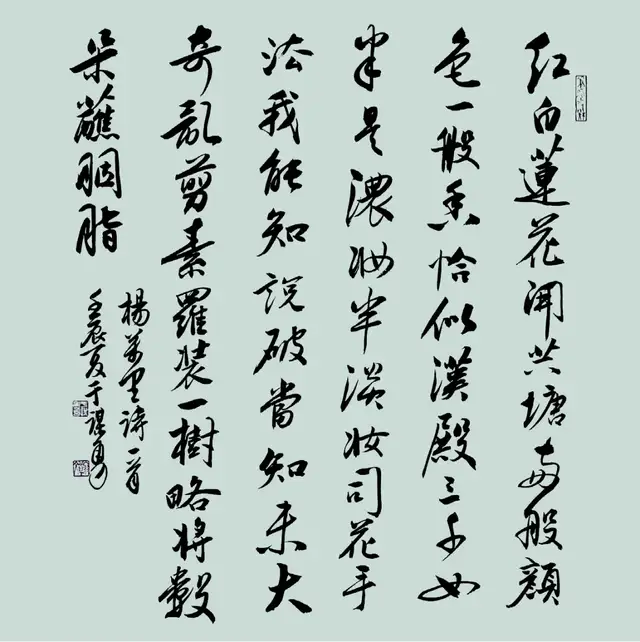 红白蓮花開共塘兩般顏
色一般香恰似漢殿三千女
半是濃妝半淡妝司花手
法我能知說破當知未大
奇亂剪素羅裝一樹略將數
朵蘸胭脂
楊萬里詩一首
壬辰夏于謀勇